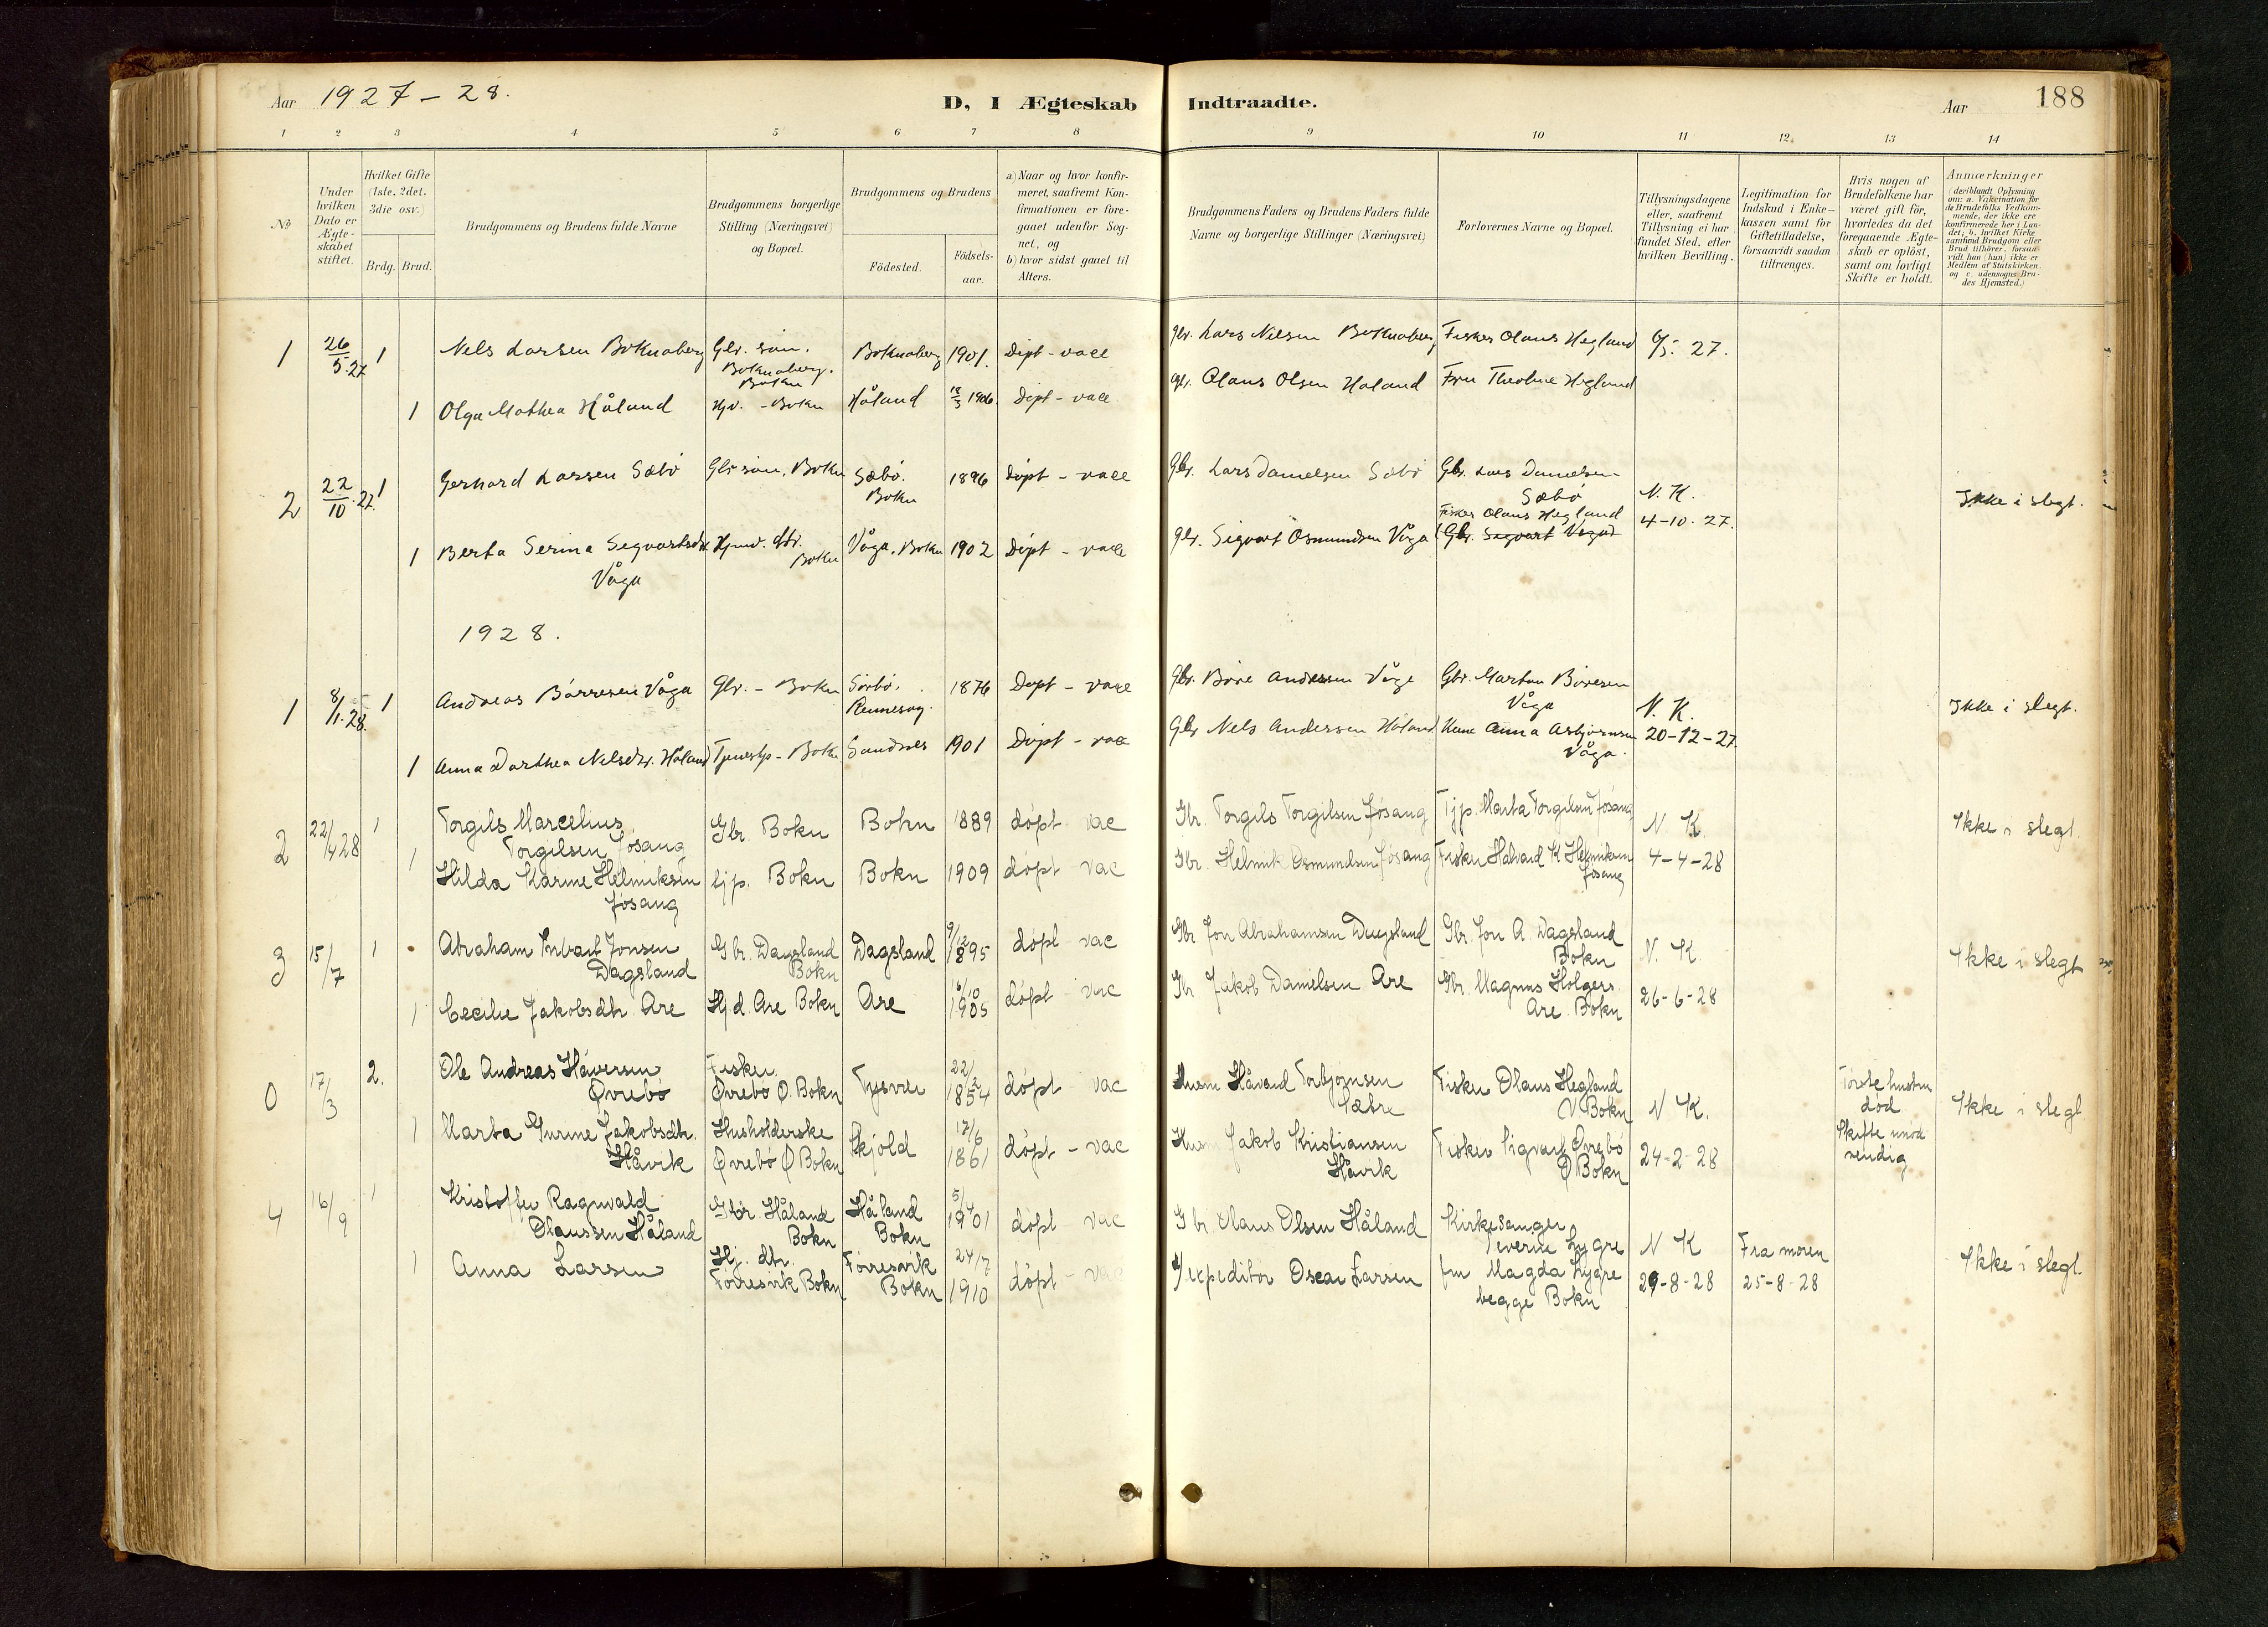 Aar 1927 - 28.
D, I Ægteskab Indtraadte.
Aar 188
1 2 3 4 5 6 7 8 9 10 11 12. 13 14
No
Under hvilken Dato er Ægteskabet stiftet.
Hvilket Gifte (1ste. 2det. 3die osv.)
Brdg. Brud.
Brudgommens og Brudens fulde Navne
Brudgommens borgerlige Stilling (Næringsvei) og Bopæl.
Brudgommens og Brudens
Födested.
Födsels-aar.
a) Naar og hvor konfirmeret, saafremt Konfirmationen er foregaaet udenfor Sognet, og
b) hvor sidst gaaet til Alters.
Brudgommens Faders og Brudens Faders fulde Navne og borgerlige Stillinger (Næringsvei)
Forlovernes Navne og Bopæl.
Tillysningsdagene eller, saafremt Tillysning ei har fundet Sted, efter hvilken Bevilling.
Legitimation for Indskud i Enkekassen samt for Giftetilladelse, forsaavidt saadan tiltrænges.
Hvis nogen af Brudefolkene har været gift för, hvorledes da det foregaaende Ægteskab er oplöst, samt om lovligt Skifte er holdt.
Anmærkninger
(deriblandt Oplysning om: a. Vakcination for de Brudefolks Vedkommende, der ikke ere konfirmerede her i Landet; b. hvilket Kirkesamfund Brudgom eller Brud tilhörer, forsaavidt han (hun) ikke er Medlem af Statskirken. og c. udensogns Brudes Hjemsted.)
1 26/5.27 1 Nels Larsen Boknaberg Gbr. søn. Boknaberg. Bokn Boknaberg 1901. Døpt - vacc Gbr. Lars Nilsen Boknaberg Fisker Olaus Hegland 6/5. 27.
1 Olga Mathea Håland Hjv. - Bokn Håland 1906. Døpt - vacc Gbr. Olaus Olsen Håland Fru Theoline Hegland
2 22/10.27. 1 Gerhard Larsen Sæbø Gbr søn. Bokn Sæbø. Bokn 1896 døpt - vacc Gbr. Lars Danielsen Sæbø Gbr. Lars Danielsen Sæbø N. K. Ikke i slegt.
Fisker Olaus Hegland 4-10. 27.
1 Berta Serina Segvartsdtr. Våga Hjmv. dtr. Bokn Våga. Bokn 1902 Døpt - vacc Gbr. Sigvart Osmundsen Våga
1928.
1 8/1.28. 1 Andreas Børresen Våga Gbr. - Bokn Sørbø, Rennesøy. 1876 Døpt - vacc Gbr. Børe Andersen Våge Gbr. Marton Børesen Våga N. K. Ikke i slegt.
1 Anna Dorthea Nelsdtr. Håland Tjenestp - Bokn Sandnes 1901 Døpt - vacc Gbr Nels Andersen Håland Kone Anna Asbjørnsen Våga. 20-12-27.
2 22/4 28 1 Torgils Marcelius Torgilsen Jøsang Gbr. Bokn Bokn 1889 døpt vac Gbr. Torgils Torgilsen Jøsang Tjp. Marta Torgilsen Jøsang N. K. Ikke i slegt.
1 Hilda Karine Helmiksen Jøsang tjp. Bokn Bokn 1909 døpt vac Gbr. Helmik Osmundsen Jøsang Fisker Halvard K Helmiksen Jøsang 4-4-28
3 15/7 1 Abraham Jonsen Dagsland Gbr. Dagsland Bokn Dagsland 9/12 1895 døpt - vac Gbr Jon Abrahamsen Dagsland Gbr. Jon A. Dagsland Bokn N. K. Ikke i slegt
1 Cecilie Jakobsdtr Are Hj d. Are Bokn Are 16/10 1905 døpt - vac Gbr Jakob Danielsen Are Gbr. Magnus Holgers Are Bokn 26-6-28
0 17/3 2. Ole Andreas Håversen Øvrebø Fisker. Øvrebø Ø. Bokn Tysvær 22/2 1854 døpt - vac Husm Håvard Torbjørnsen Sæbre Fisker Olaus Hegland V Bokn N K. Første hustru død Ikke i slegt
1 Marta Gurine Jakobsdtr. Håvik Husholderske Øvrebø Ø Bokn Skjold 17/6 1861 døpt - vac Husm Jakob Kristiansen Håvik Fisker Sigvart Øvrebø Ø Bokn 24-2-28 Skifte unødvendig
4 16/9 1 Kristoffer Ragnvald Olaussen Håland Gbr. Håland Bokn Håland Bokn 5/4 1901 døpt vac Gbr Olaus Olsen Håland Kirkesanger Severin Lygre N K Fra moren Ikke i slegt.
1 Anna Larsen Hj. dtr. Førresvik Bokn Førresvik Bokn 24/7 1910 døpt - vac Expeditør Oscar Larsen fru Magda Lygre begge Bokn 29-8-28 25-8-28